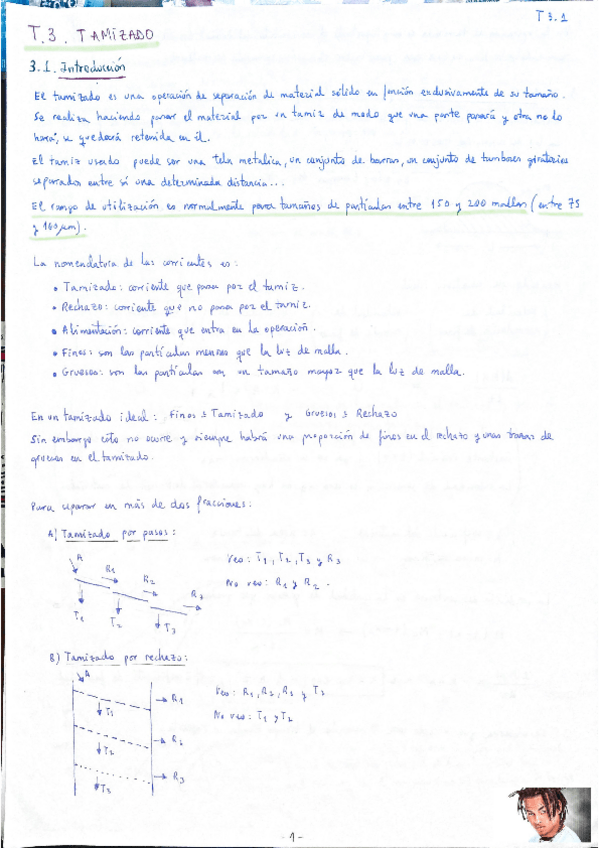 T 3.1
T.3. TAMIZADO
3.1. Introducción
El tamizado es una operación de separación de material sólido en función exclusivamente de su tamaño.
Se realiza haciendo pasar el material por un tamiz de modo que una parte pasará y otra no lo
hará, se quedará retenida en él.
El tamiz usado puede ser una tela metalica, un conjunto de barras, un conjunto de tambores giratorios
separados entre sí una determinada distancia...
El rango de utilización es normalmente para tamaños de partículas entre 150 y 200 mallas (entre 75
y 100 µm).
La nomenclatura de las corrientes es:
• Tamizado: corriente que pasa por el tamiz.
• Rechazo: corriente que no pasa por el tamiz.
• Alimentación: corriente que entra en la operación.
• Finos: son las partículas menores que la luz de malla.
• Gruesos: son las partículas con un tamaño mayor que la luz de malla.
En un tamizado ideal: Finos = Tamizado y Gruesos = Rechazo
Sin embargo esto no ocurre y siempre habrá una proporción de finos en el rechazo y unas trazas de
gruesos en el tamizado.
Para separar en más de dos fracciones:
A) Tamizado por pasos:
A R1 R2 R3
T1 T2 T3
Veo: T1, T2, T3 y R3
No veo: R1 y R2.
B) Tamizado por rechazo:
A
R1
T1
R2
T2
R3
T3
Veo: R1, R2, R3 y T3
No veo: T1 y T2
- 1 -